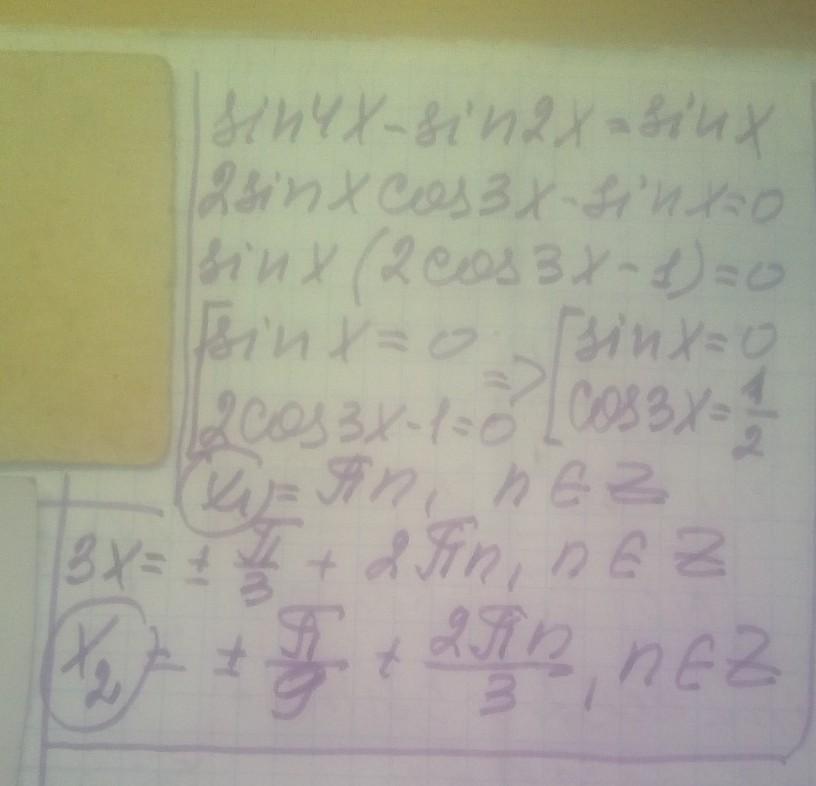 sin4x-sin2x=sinx
2sinxcos3x-sinx=0
sinx(2cos3x-1)=0
[sinx=0 => [sinx=0
2cos3x-1=0 cos3x=1/2
x₁=πn, n∈Z
3x=±π/3+2πn, n∈Z
x₂=±π/9+2πn/3, n∈Z